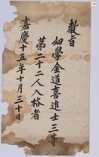 教旨
幼學金道喜進士三等
第二十二人入格者
嘉慶十五年十月三十日